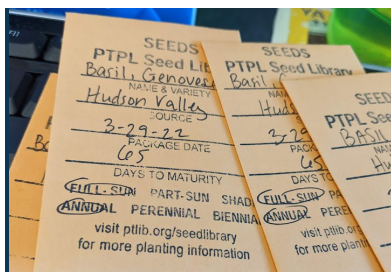 SEEDS
PTPL Seed Lib
Basil, Genoves
NAME & VARIETY
Hudson Valley
SOURCE
3-29-22
PACKAGE DATE
65
DAYS TO MATURITY
FULL-SUN PART-SUN SHAD
ANNUAL PERENNIAL BIENNIA
visit ptlib.org/seedlibrary
for more planting information
SEEDS
PTPL Seed Library
Basil
NAM
Huds
3-29
PACK
65
DAYS TO
FULL-SUN PA
ANNUAL PERE
visit ptlib
for more plan
SEE
PTPL See
BASIL
NA
Hu
F11